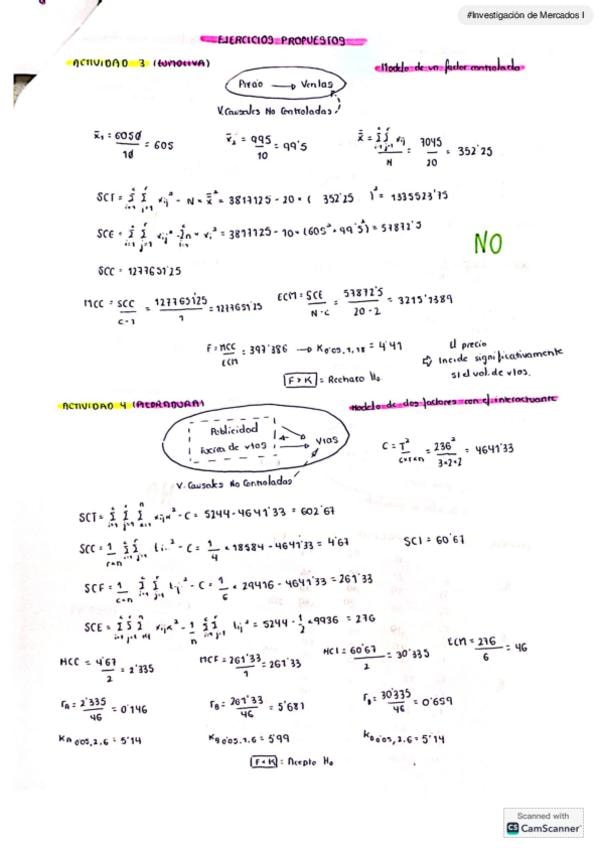 #Investigación de Mercados I
EJERCICIOS PROPUESTOS
ACTIVIDAD 3
Modelo de un factor controlado
Precio → Ventas
V. Causales No Controladas
x̄₁ = 6050/10 = 605
x̄₂ = 995/10 = 99'5
= 7045/20 = 352'25
SCT = Σ Σ xij² - N × x̿² = 3817125 - 20 × ( 352'25 )² = 1335523'75
SCE = = 3817125 - 10 × (605² + 99'5²) = 57872'5
NO
SCC = 1277651'25
MCC = SCC/C-1 = 1277651'25/1 = 1277651'25
ECM = SCE/N-C = 57872'5/20-2 = 3215'1389
F = MCC/ECM = 397'386 → K0'05,1,18 = 4'41
El precio
Incide significativamente
s/ el vol. de vtas.
F > K = Rechazo H₀
ACTIVIDAD 4
Modelo de dos factores con ef. interactuante
Publicidad
Fuerza de vtas
Vtas
V. Causales No Controladas
C = T²/c×r×n = 236²/3×2×2 = 4641'33
SCT = - C = 5244 - 4641'33 = 602'67
SCC = - C = 1/4 × 18584 - 4641'33 = 4'67
SCI = 60'67
SCF = - C = 1/6 × 29416 - 4641'33 = 261'33
SCE = = 5244 - 1/2 × 9936 = 276
MCC = 4'67/2 = 2'335
MCF = 261'33/1 = 261'33
MCI = 60'67/2 = 30'335
ECM = 276/6 = 46
= 2'335/46 = 0'146
= 261'33/46 = 5'681
= 30'335/46 = 0'659
0'05,2,6 = 5'14
0'05,1,6 = 5'99
0'05,2,6 = 5'14
F < K : Acepto H₀
Scanned with
CS CamScanner